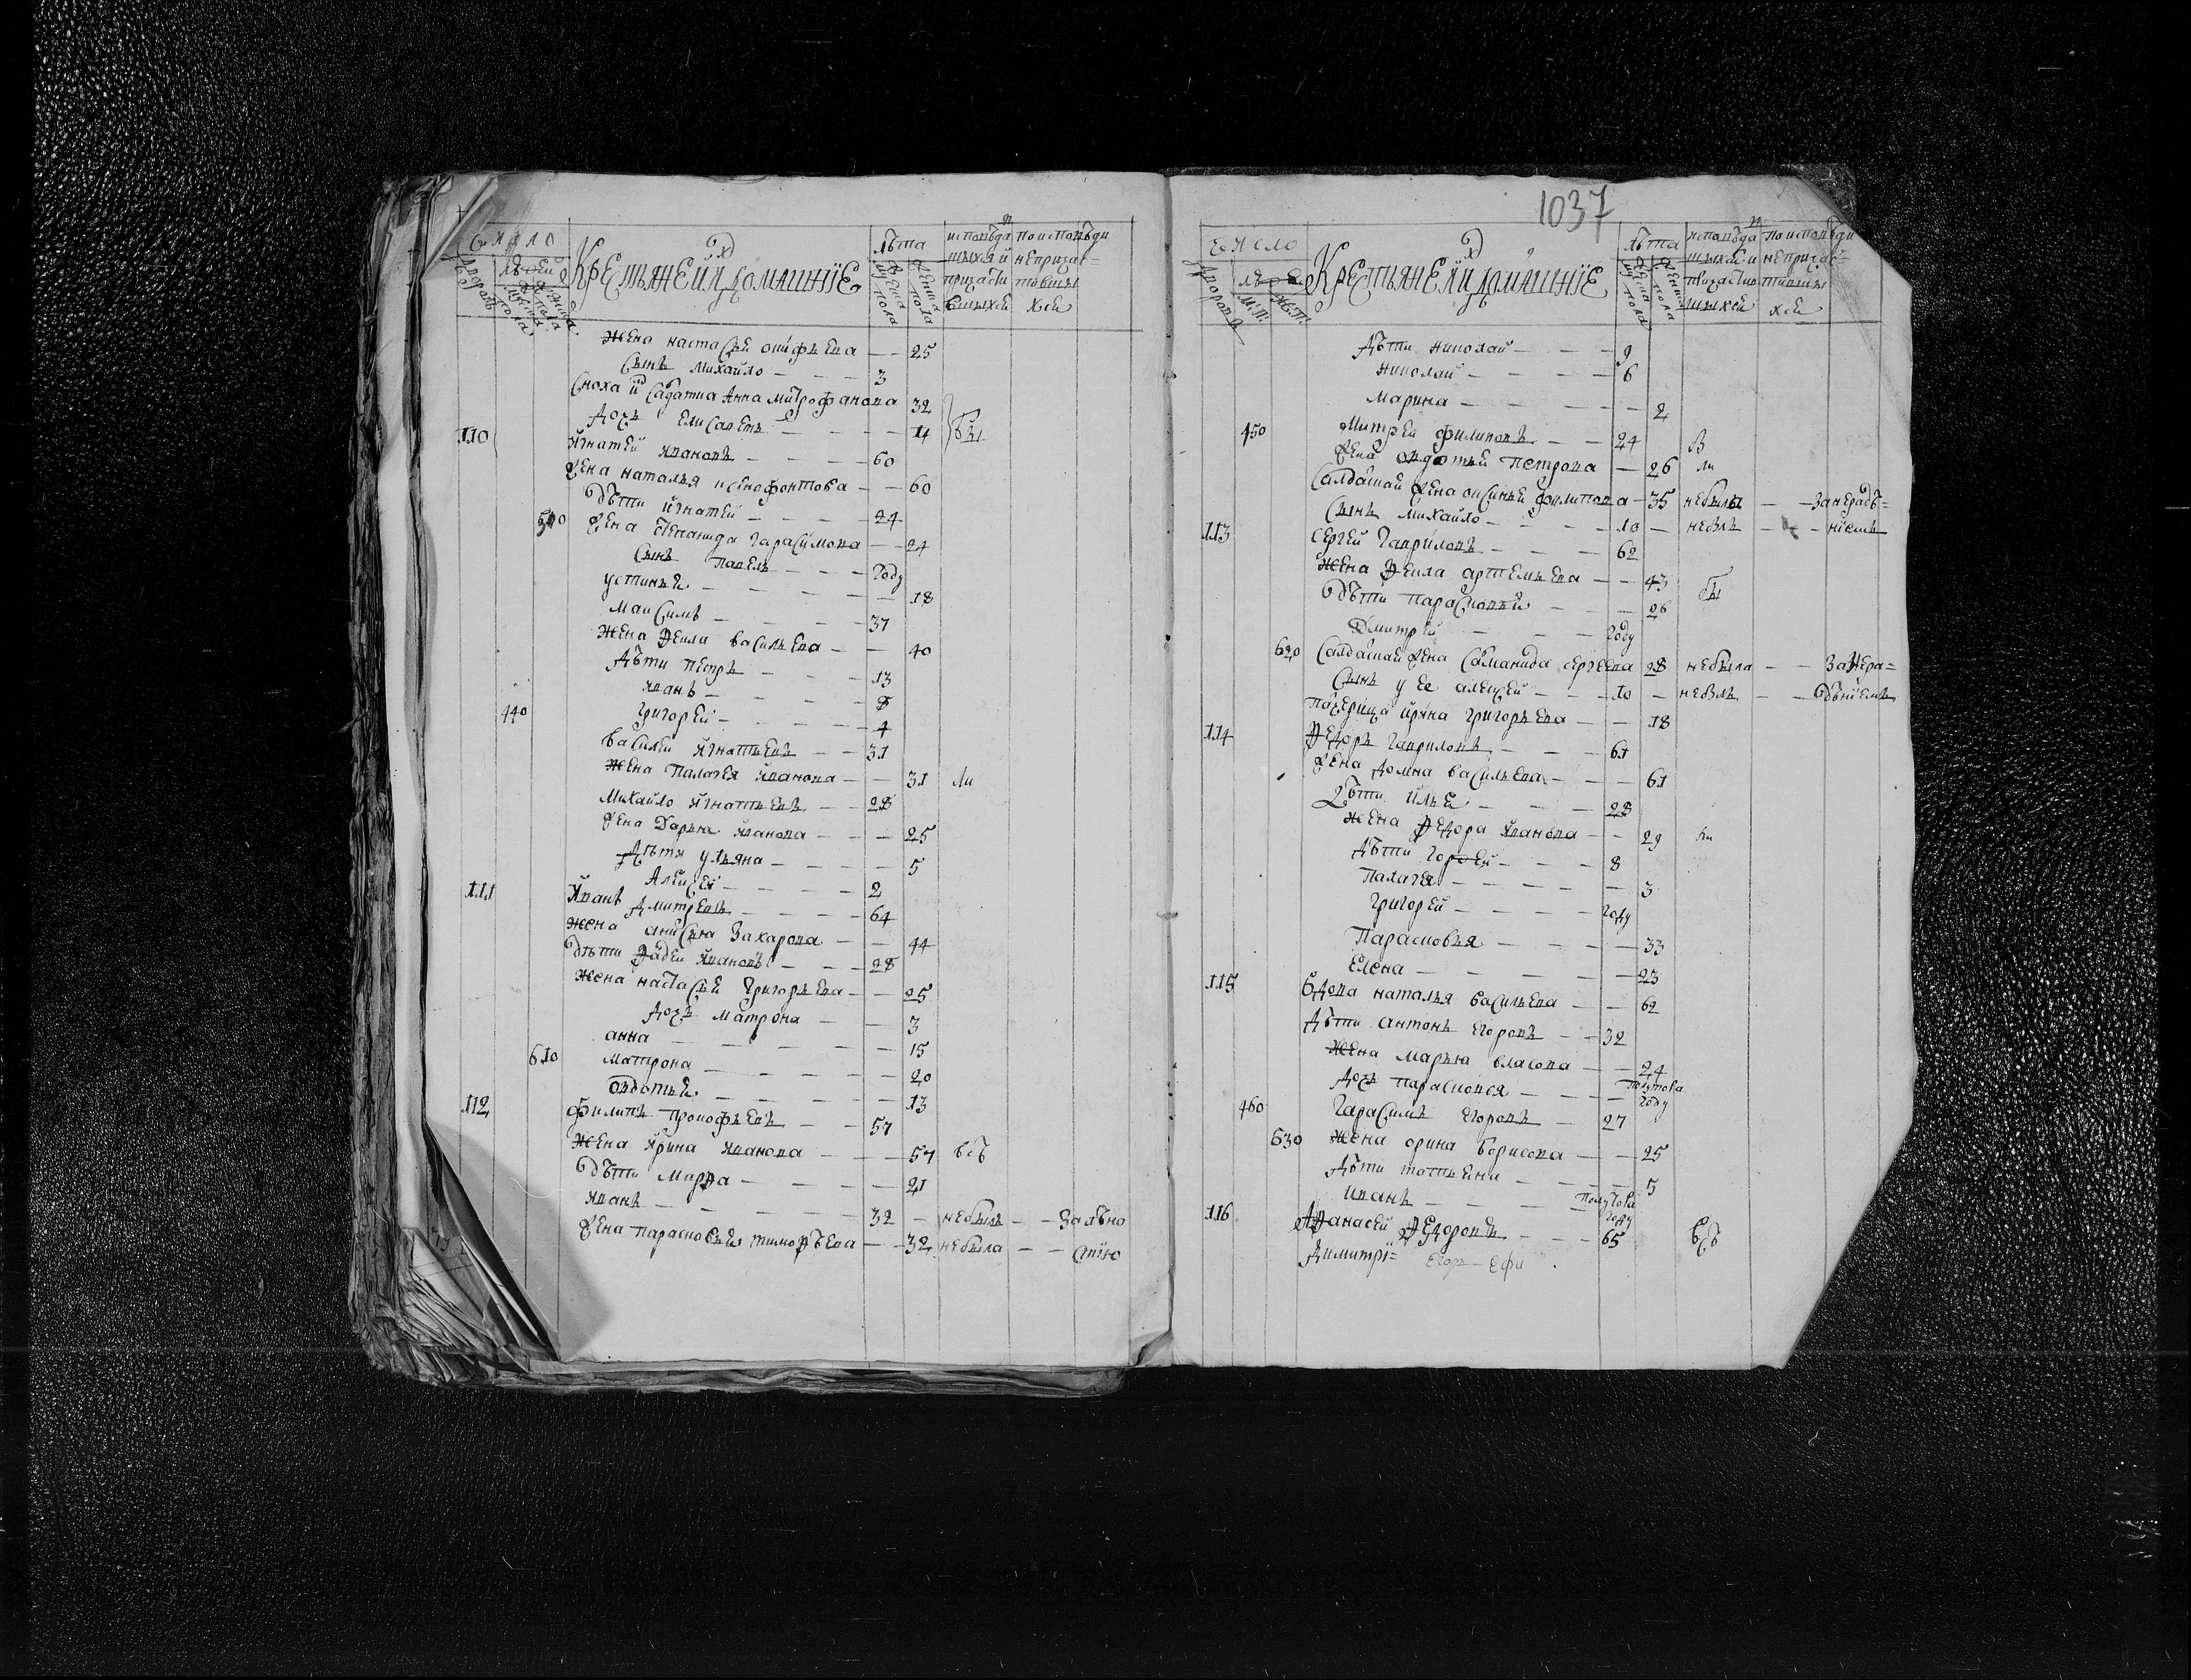 Число
Крестьяне и их домашнїе
лѣта
исповѣда по исповѣди
дворовъ
людей
шихся и непричас=
мужеска пола
женска пола
мужеска пола
женска пола
причасти тившы
вшихся хся
Жена настасья онифрьева — — 25
Сынъ михайло — — — 3
Сноха солдатка Анна митрофанова 32
дочь елисаветъ — — — — 14
110 Игнатей ивановъ — — — 60 бы
жена наталья ксенофонтова — — 60
дѣти игнатей — — — 24
жена степанида гарасимова — — 24
сынъ павелъ — — — году
устинья — — — — 18
максимъ — — — 37
Жена фекла васильева — — 40
дѣти петръ — — — 13
иванъ — — — 8
440 григорей — — — 4
василей игнатьевъ — — 31
жена палагея иванова — — 31 ли
михайло игнатьевъ — — 28
жена дарья иванова — — — 25
дѣти ульяна — — — — 5
Алексей — — — 2
111 Иванъ дмитревъ — — — 64
жена анисья захарова — — 44
дѣти фадей ивановъ — — — 28
жена настасья григорьева — — 25
дочь матрона — — 3
анна — — — — 15
610 матрона — — — — 20
овдотья — — — — 13
112 Филипъ прокофьевъ — — 57
Жена ирина иванова — — — 57 всѣ
дѣти марфа — — — — 21
иванъ — — — — 32 — небылъ — — за лѣно
жена парасковья тимофѣева — — 32 небыла — — стїю
1037
Число
Крестьяне и их домашнїе
лѣта
исповѣда по исповѣди
дворовъ
м:п:
ж:п:
мужеска пола
женска пола
шихся и непричас=
причастив тившы
шихся хся
дѣти николай — — — 9
николай — — — — 6
марина — — — — — 2
450 митрей филиповъ — — 24 в
жена овдотья петрова — 26 ли
Салдацкая жена аксинья филипова — 35 небыла — — за нерадѣ=
сынъ михайло — — — 10 — небылъ — — нїемъ
113 сергей гавриловъ — — — 62
Жена фекла артемьева — — 43 бы
дѣти парасковья — — — 26
дмитрей — — — году
620 Салдацкая жена саманида сергеева 28 небыла — — за нера=
сынъ у ее алексей — — — 10 — небылъ — — дѣнїемъ
падчерица ирина григорьева — — 18
114 Федоръ гавриловъ — — — 61
жена домна васильева — — — 61
дѣти илья — — — 28
жена федора иванова — — 29 ли
дѣти гордей — — — 8
палагея — — — — — 3
григорей — — — — году
парасковья — — — — 33
Елена — — — — — 23
115 вдова наталья васильева — — 62
дѣти антонъ егоровъ — — 32
жена марья власова — — 24
дочь парасковья — — — полутора году
460 гарасимъ егоровъ — — 27
630 жена орина борисова — — 25
дѣти татьяна — — — — 5
иванъ — — — полутора году
116 Афанасей федоровъ — — — 65 всѣ
димитрї=